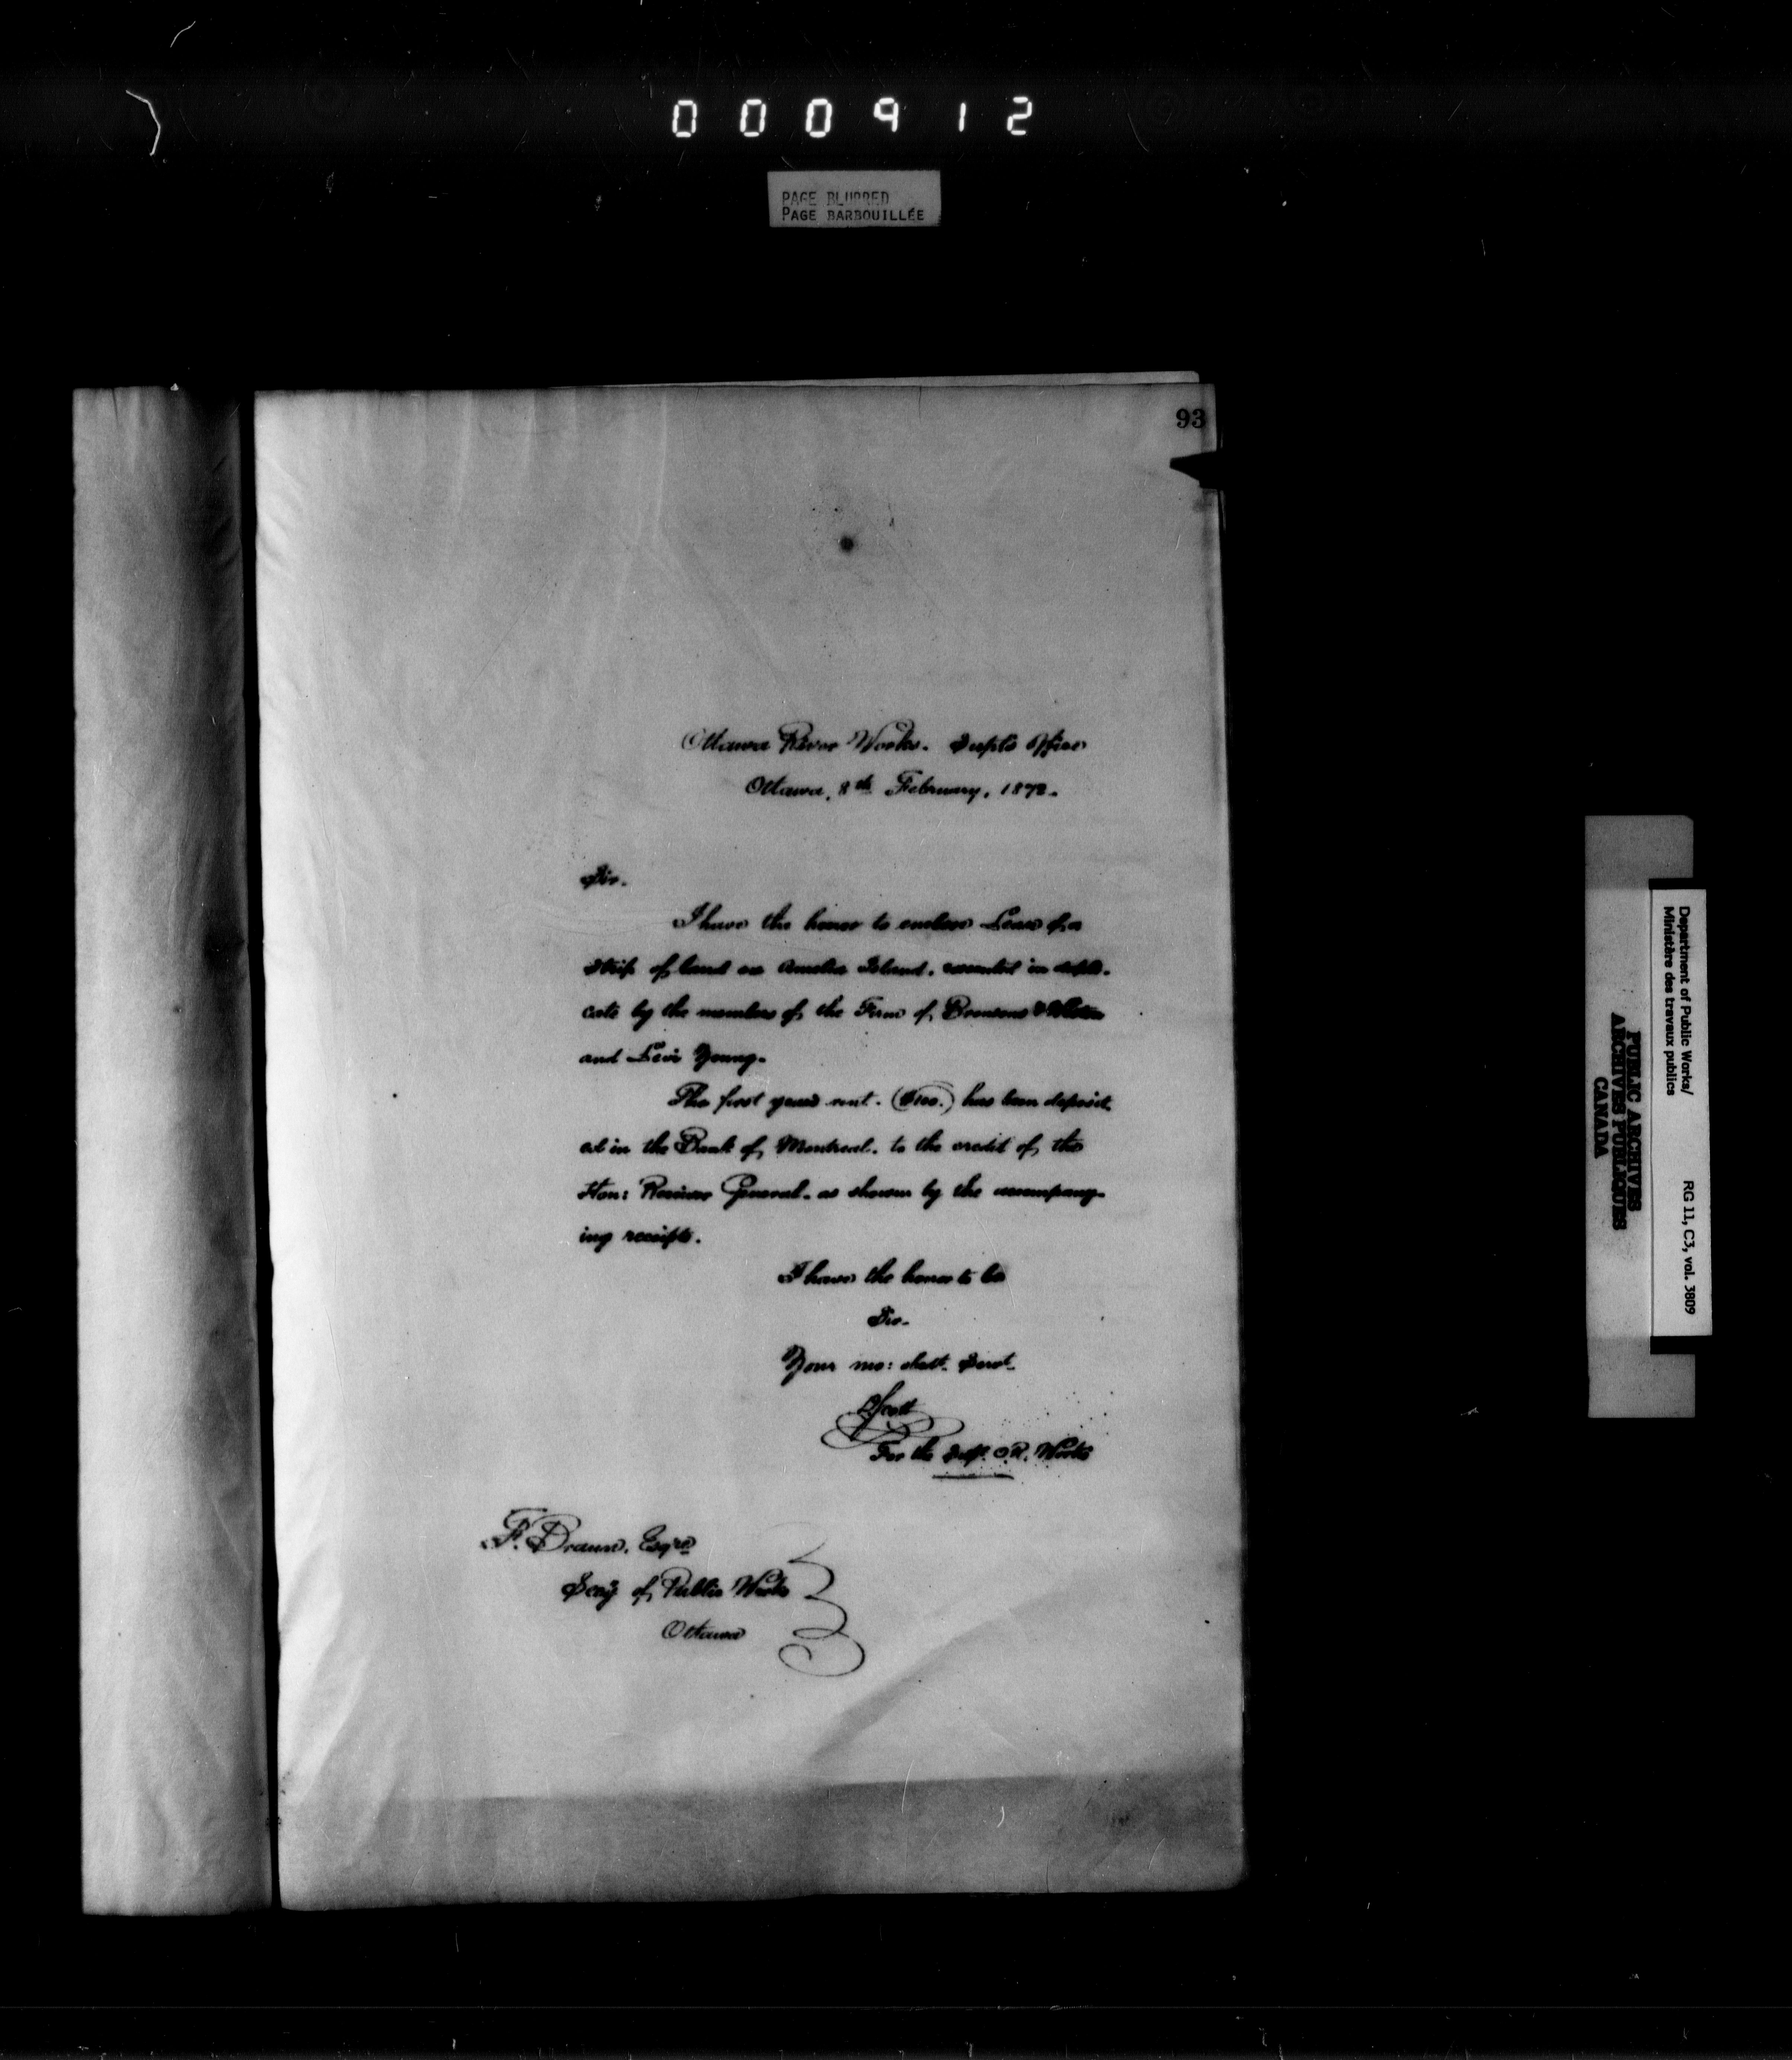 000912
PAGE BLURRED
PAGE BARBOUILLÉE
93
Ottawa River Works. Supt's Office
Ottawa, 8th February, 1872.
Sir.
I have the honor to enclose Lease of a
strip of land on Amelia Island. executed in dupli-
cate by the members of the Firm of Bronsons & Weston
and Levi Young.
The first years rent. ($100.) has been deposit-
ed in the Bank of Montreal. to the credit of the
Hon: Receiver General. as shown by the accompany-
ing receipts.
I have the honor to be
Sir.
Your mo: obedt. Servt.
Scott
For the Supt. O.R. Works
F. Braun. Esqre
Secy. of Public Works
Ottawa
Department of Public Works/
Ministère des travaux publics
RG 11, C3, vol. 3809
PUBLIC ARCHIVES
ARCHIVES PUBLIQUES
CANADA